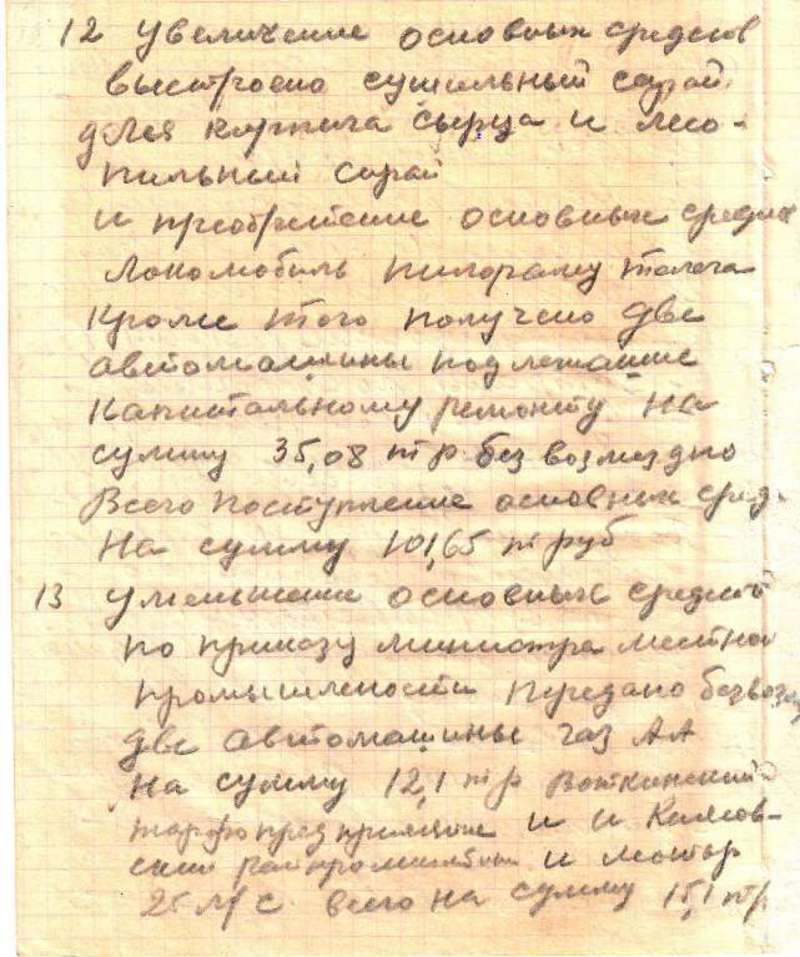 12 Увеличение основных средств
выстроено сушильный сарай
для кирпича сырца и лесо-
пильный сарай
и преобретение основных средств
Локомобиль пилораму телега
Кроме того получено две
автомашины подлежащие
капитальному ремонту на
сумму 35,08 т р без возмездно
Всего поступление основных сред.
На сумму 101,65 т руб
13 Уменьшение основных средств
по приказу министра местной
промышлености передано безвозм
две автомашины газ АА
на сумму 12,1 т р Воткинский
торфопредприятие и и
и мотор
25 л/с всего на сумму 15,1 т р